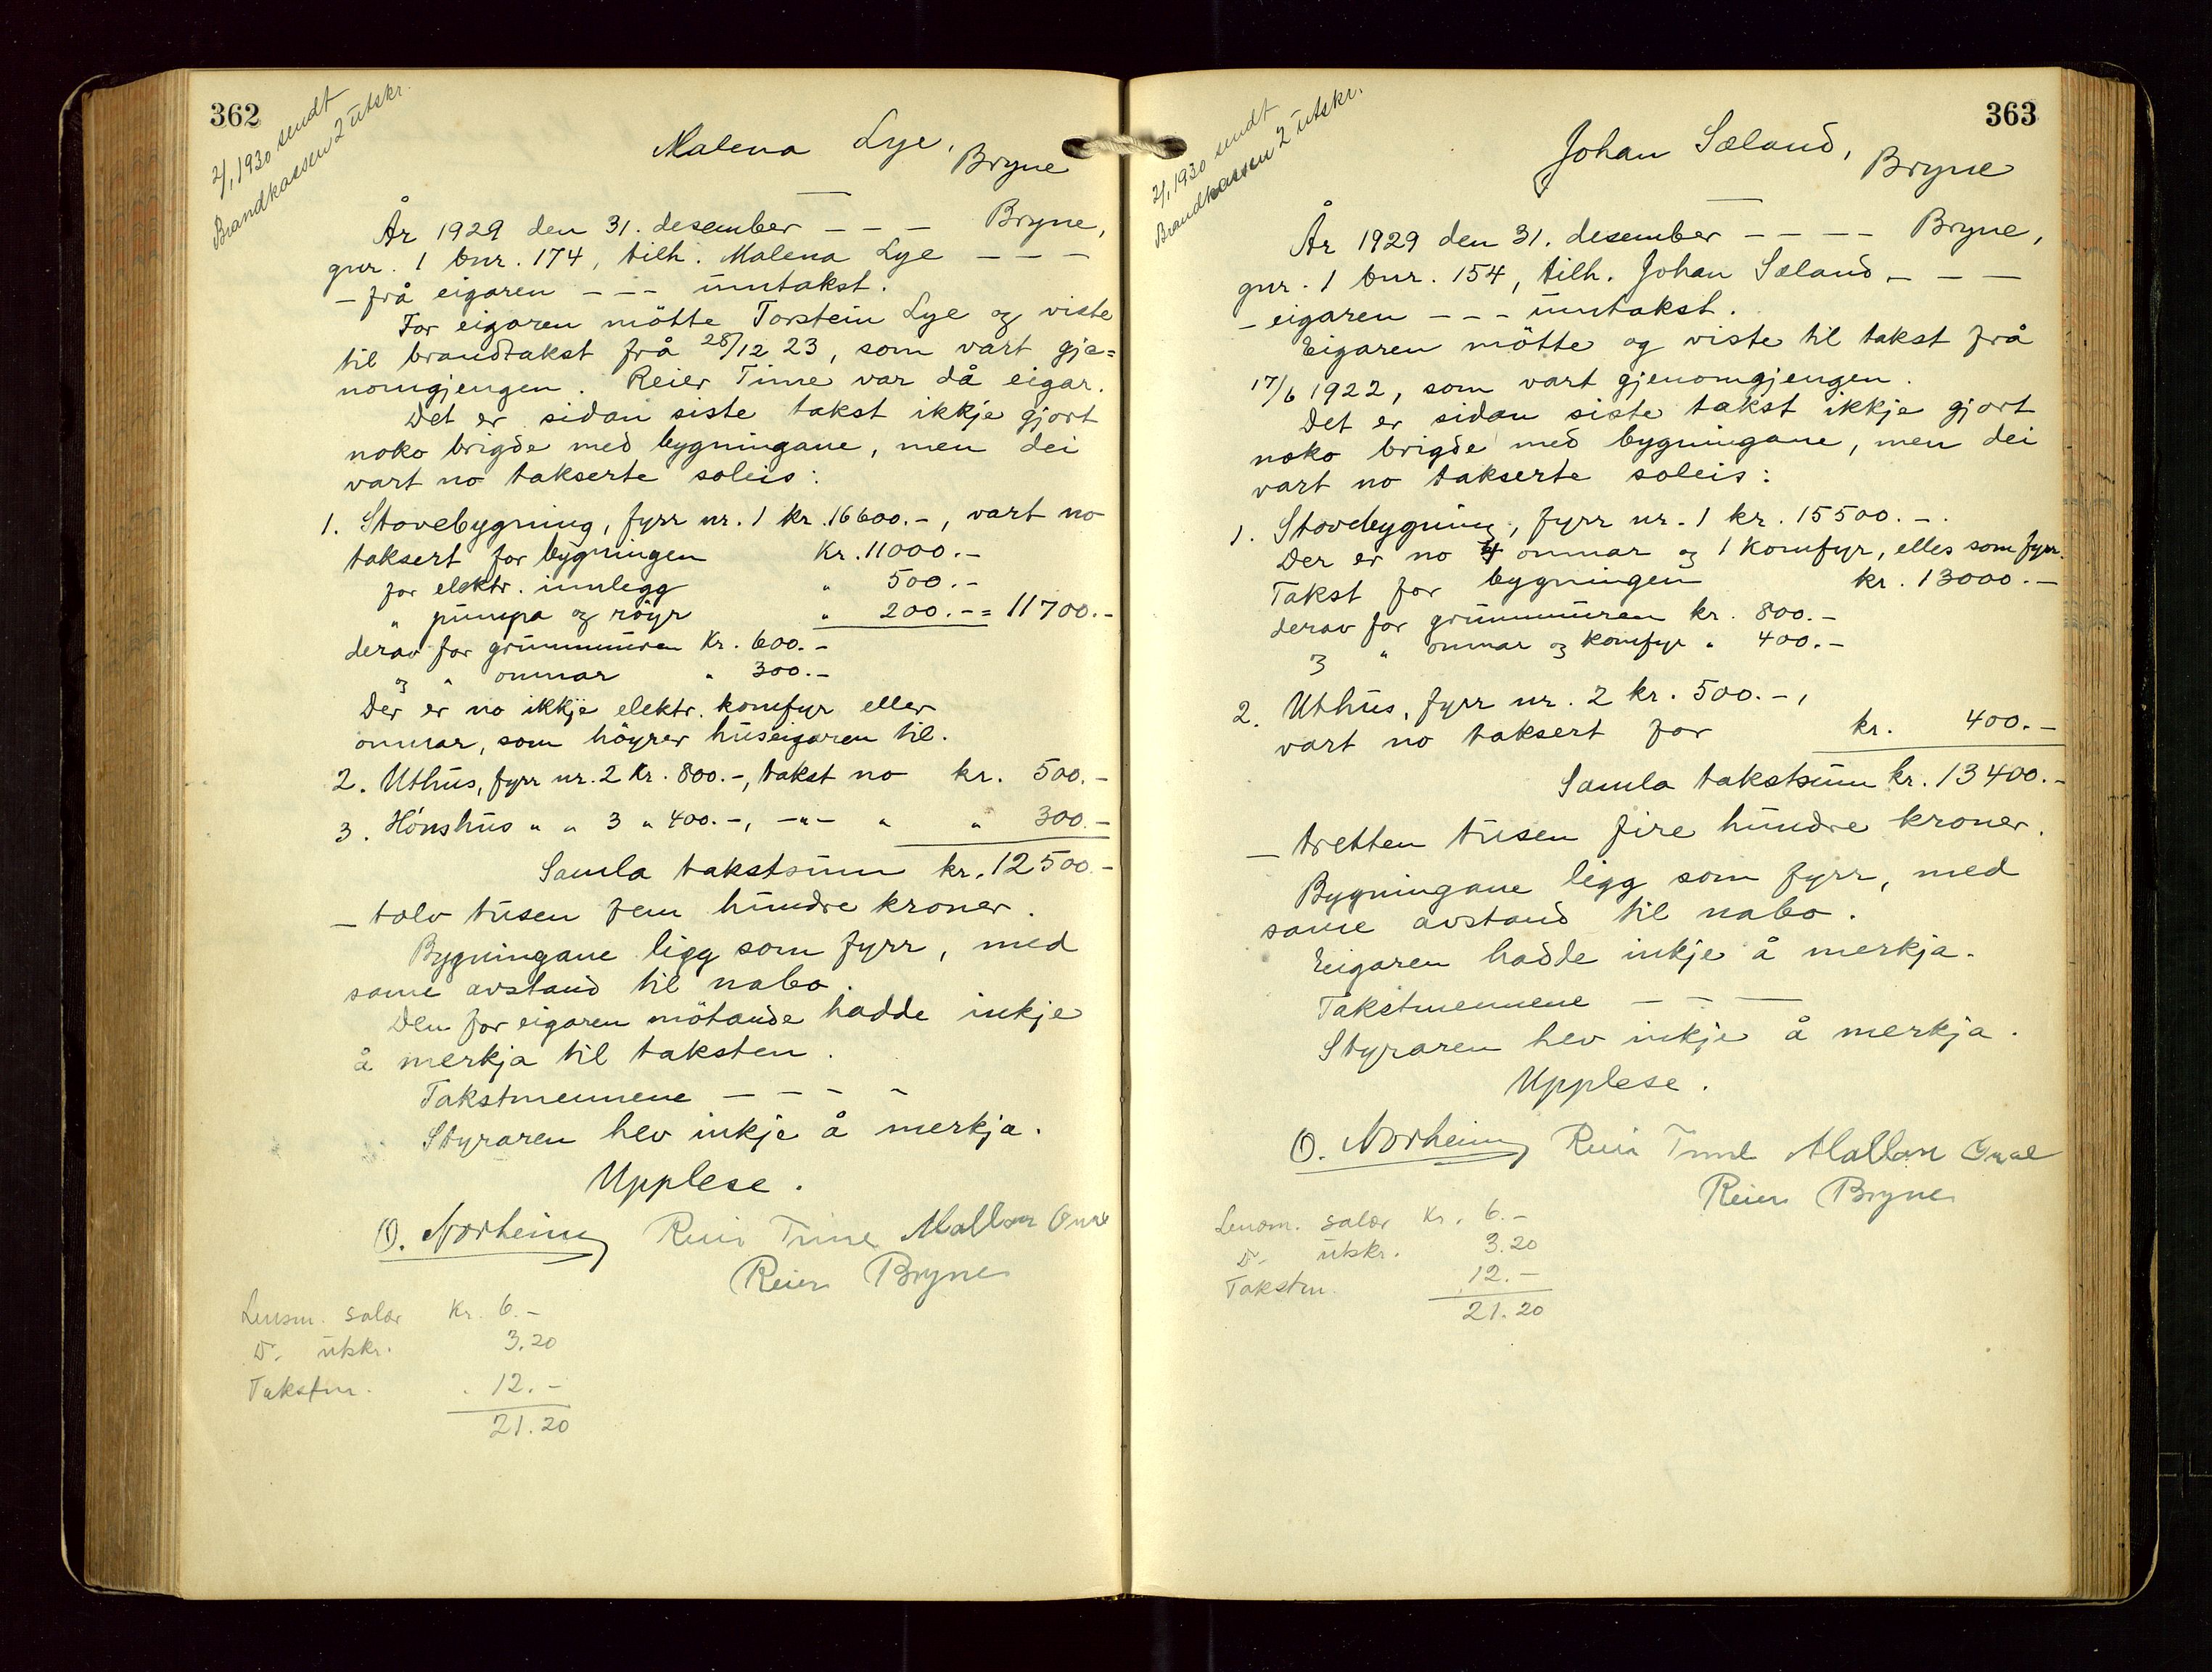 362
2/1 1930 sendt
Brandkassen 2 utskr.
Malena Lye,
Bryne
År 1929 den 31. desember - - - Bryne,
gnr. 1 bnr. 174, tilh. Malena Lye - - -
- frå eigaren - - - umtakst.
For eigaren mötte Torstein Lye og viste
til brandtakst frå 28/12 23, som vart gje=
nomgjengen. Reier Time var då eigar.
Det er sidan siste takst ikkje gjort
noko brigde med bygningane, men dei
vart no takserte soleis:
1. Stovebygning, fyrr nr. 1 kr. 16600.-, vart no
taksert for bygningen Kr. 11000.-
for elektr. innlegg " 500.-
" pumpa og röyr " 200.- = 11700.-
derav for grunnmuren Kr. 600.-
og " omnar " 300.-
Der er no ikkje elektr. komfyr eller
omnar, som höyrer huseigaren til.
2. Uthus, fyrr nr. 2 Kr. 800.-, takst no kr. 500.-
3. Hönshus " " 3 " 400.-, -"- " " 300.-
Samla takstsum kr. 12500.-
- tolv tusen fem hundre kroner.
Bygningane ligg som fyrr, med
same avstand til nabo.
Den for eigaren mötande hadde inkje
å merkja til taksten.
Takstmennene - - - -
Styraren hev inkje å merkja.
Upplese.
O. Norheim Reier Time Mallon
Reier Bryne
Lensm. salær Kr. 6.-
D- utskr. 3.20
Takstm. 12.-
21.20
363
2/1 1930 sendt
Brandkassen 2 utskr.
Johan Sæland,
Bryne
År 1929 den 31. desember - - - - Bryne,
gnr. 1 bnr. 154, tilh. Johan Sæland - - -
- eigaren - - - umtakst.
Eigaren mötte og viste til takst frå
17/6 1922, som vart gjenomgjengen.
Det er sidan siste takst ikkje gjort
noko brigde med bygningane, men dei
vart no takserte soleis:
1. Stovebygning, fyrr nr. 1 kr. 15500.-.
Der er no 4 omnar og 1 komfyr, elles som fyrr.
Takst for bygningen kr. 13000.-
derav for grunnmuren kr. 800.-
og " omnar og komfyr " 400.-
2. Uthus, fyrr nr. 2 kr. 500.-,
vart no taksert for kr. 400.-
Samla takstsum kr. 13400.-
- tretten tusen fire hundre kroner.
Bygningane ligg som fyrr, med
same avstand til nabo.
Eigaren hadde inkje å merkja.
Takstmennene - - -
Styraren hev inkje å merkja.
Upplese.
O. Norheim Reier Time Mallon
Reier Bryne
Lensm. salær Kr. 6.-
D- utskr. 3.20
Takstm. 12.-
21.20